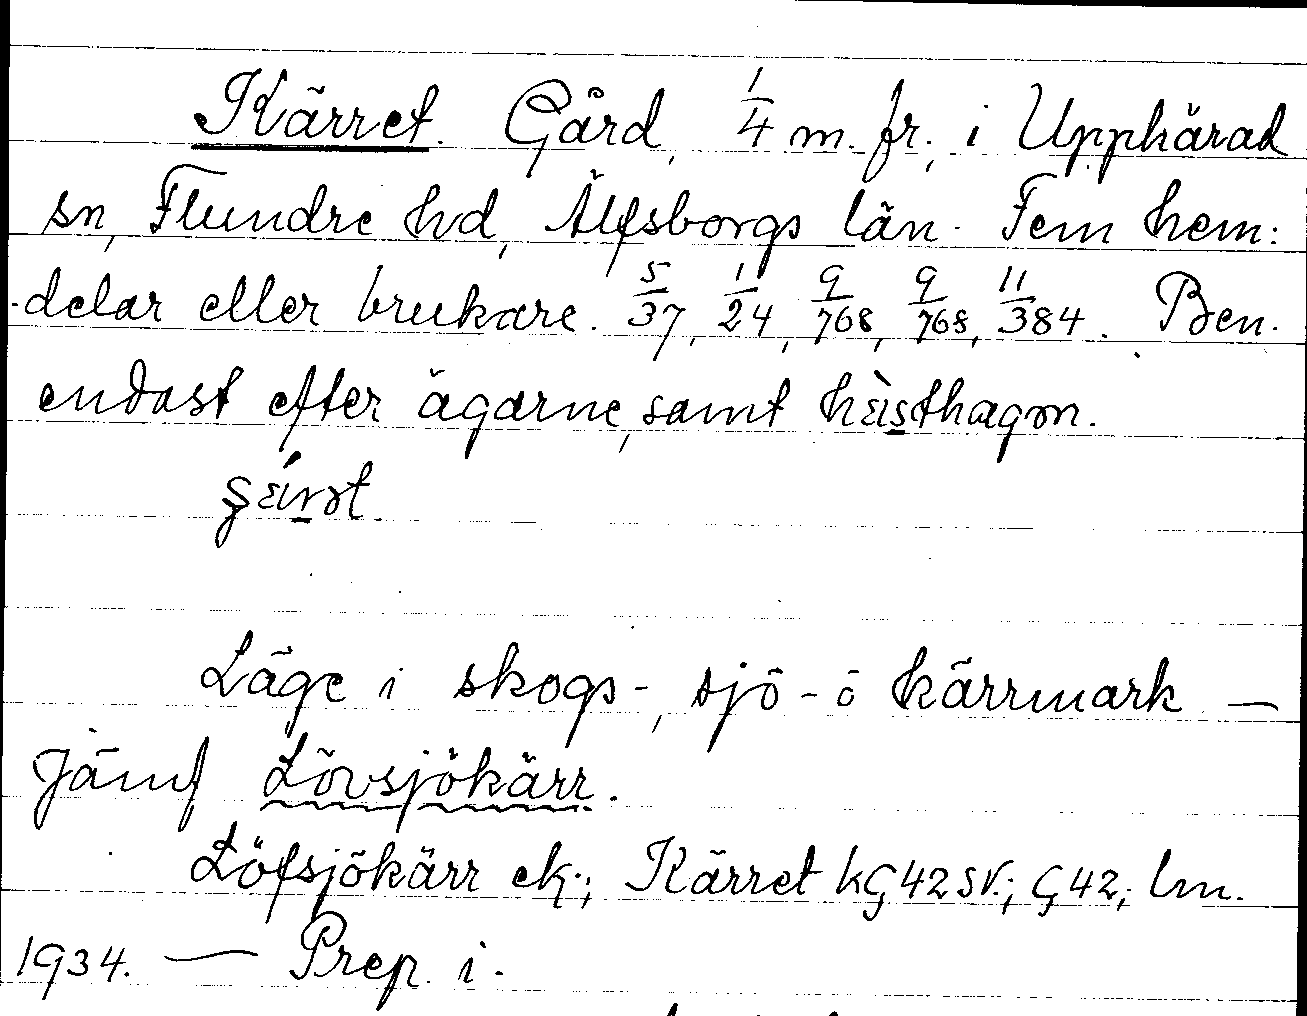 Kärret. Gård, 1/4 m. fr., i Upphärad
sn, Flundre hd, Älfsborgs län. Fem hem:
delar eller brukare. 5/37, 1/24, 9/768, 9/768, 11/384. Ben.
endast efter ägarne, samt hὲsthagɷn.
Läge i skogs-, sjö- o kärrmark —
Jämf Lövsjökärr.
Löfsjökärr ek.; Kärret kG 42 sv.; G 42; lm.
1934. — Prep. i.